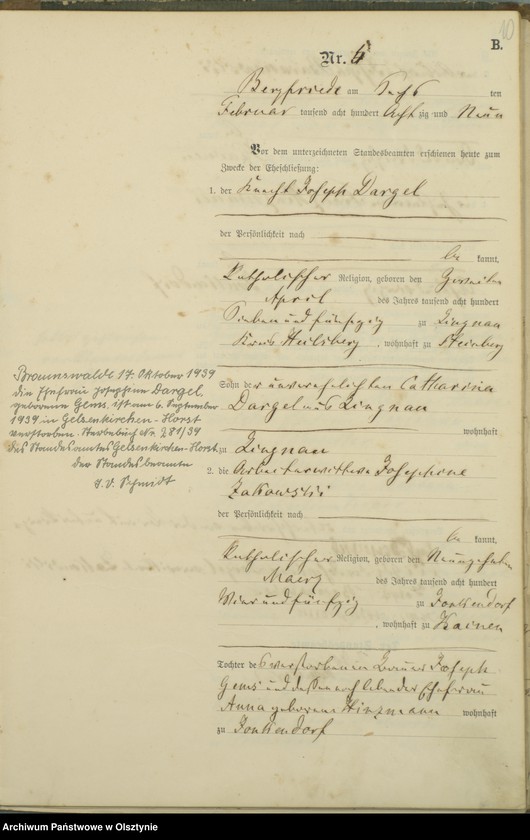 10
B.
Nr. 6
Bergfriede am Sechs ten
Februar tausend acht hundert Acht zig und Neun
Vor dem unterzeichneten Standesbeamten erschienen heute zum
Zwecke der Eheschließung:
1. der Knecht Joseph Dargel
der Persönlichkeit nach
be kannt,
Katholischer Religion, geboren den Zweiten
April des Jahres tausend acht hundert
Sieben und fünfzig zu Lingnau
Kreis Heilsberg, wohnhaft zu Steinberg
Sohn der unverehelichten Catharina
Dargel aus Lingnau
wohnhaft
zu Lingnau
2. die Arbeiterwittwe Josephine
Zakowski
der Persönlichkeit nach
be kannt,
Katholischer Religion, geboren den Neunzehnten
Maerz des Jahres tausend acht hundert
Vier und fünfzig zu Jonkendorf
, wohnhaft zu Kainen
Tochter des verstorbenen Bauer Joseph
Gems und dessen noch lebender Ehefrau
Anna geborene Hinzmann wohnhaft
zu Jonkendorf
Braunswalde 17. Oktober 1939
Die Ehefrau Josephine Dargel,
geborene Gems, ist am 6. September
1939 in Gelsenkirchen-Horst
verstorben. Sterbebuch Nr. 281/39
des Standesamtes Gelsenkirchen-Horst.
Der Standesbeamte
I. V. Schmidt
Archiwum Państwowe w Olsztynie